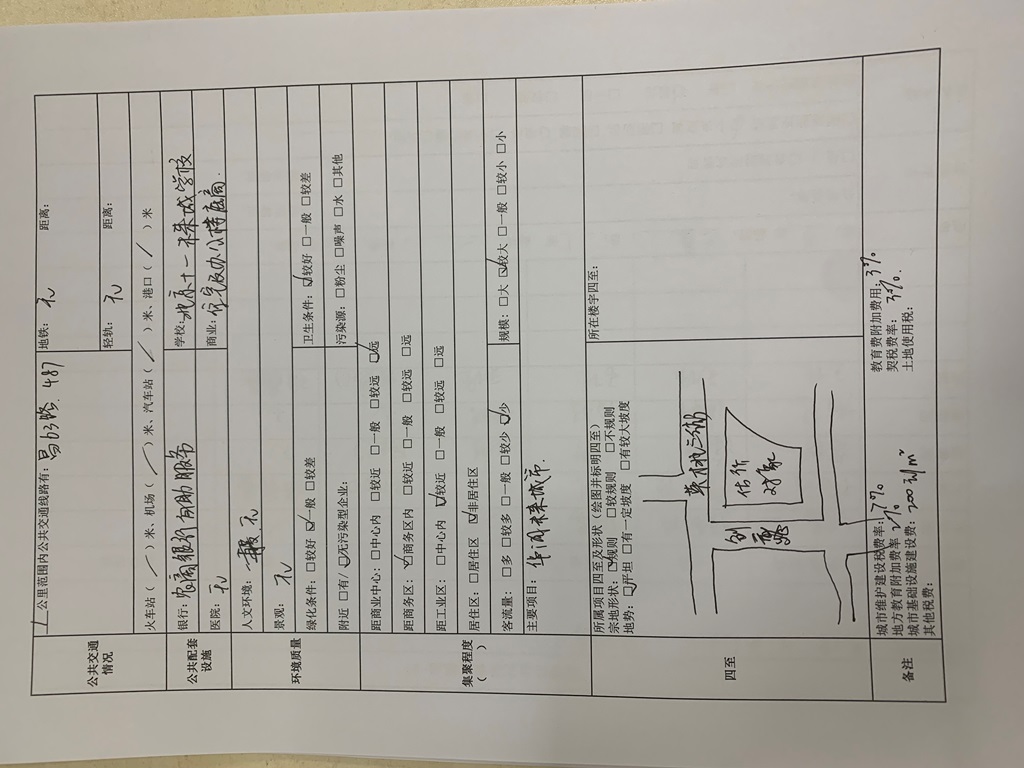 公共交通情况
1 公里范围内公共交通线路有：昌63路、487
地铁：无 距离：
轻轨：无 距离：
火车站（/）米、机场（/）米、汽车站（/）米、港口（/）米
公共配套设施
银行：农商银行自助服务
学校：北京十一未来城学校
医院：无
商业：住宅及办公楼底商.
环境质量
人文环境：无
景观：无
绿化条件：□较好 ☑一般 □较差
卫生条件：☑较好 □一般 □较差
附近 □有/☑无污染型企业：
污染源：□粉尘 □噪声 □水 □其他
集聚程度（ ）
距商业中心：□中心内 □较近 □一般 □较远 ☑远
距商务区：☑商务区内 □较近 □一般 □较远 □远
距工业区：□中心内 ☑较近 □一般 □较远 □远
居住区：□居住区 ☑非居住区
客流量：□多 □较多 □一般 □较少 ☑少
规模：□大 ☑较大 □一般 □较小 □小
主要项目：华润未来城市.
四至
所属项目四至及形状（绘图并标明四至）
宗地形状：☑规则 □较规则 □不规则
地势：☑平坦 □有一定坡度 □有较大坡度
估价
对象
所在楼宇四至：
备注
城市维护建设税费率：
地方教育附加费率：2%
城市基础设施建设费：200元/m²
其他税费：
教育费附加费用：3%
契税费率：3%.
土地使用税：